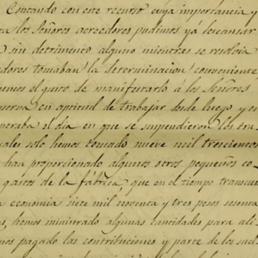 Contando con este recurso cuya importancia y
los Señores acreedores pudimos ya descansar
sin detrimento alguno mientras se
dores tomaban la determinacion conveniente
mos el gusto de manifestarlo á los Señores
en aptitud de trabajar desde luego, y en
el dia en que se suspendieron los
esto hemos tomado nueve mil trescientos
han proporcionado algunos otros pequeños co
gastos de la fábrica, que en el tiempo transcu
economia siete mil noventa y tres pesos
hemos ministrado algunas cantidades para ali
mos pagado las contribuciones y parte de los suel